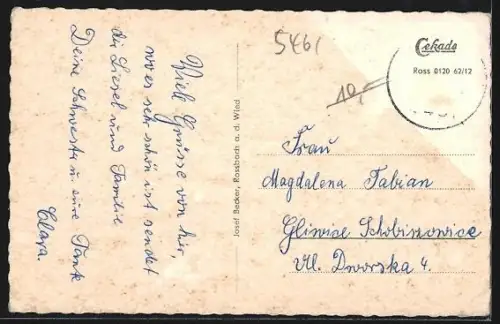 Viele Grüsse von hir,
wo es seh schön ist sendet
dir Liesel und Familie
Deine Schwester u eure Tante
Clara.
Josef Becker, Rossbach a. d. Wied
5461
10,-
Cekade
Ross 0120 62/12
Frau
Magdalena Fabian
Gliwice Schobiszowice
Ul. Dworska 4.